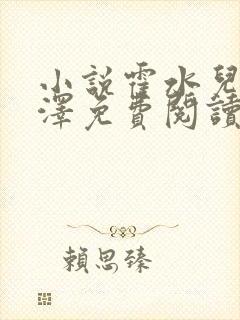 小說霍水兒
澤免費閱讀
賴思臻